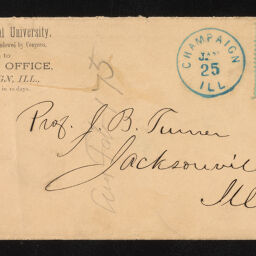 al University,
ndowed by Congress,
to
OFFICE,
GN, ILL.,
in 10 days.
CHAMPAIGN
JAN
25
ILL
75
Prof. J. B. Turner
Jacksonvil
Ill